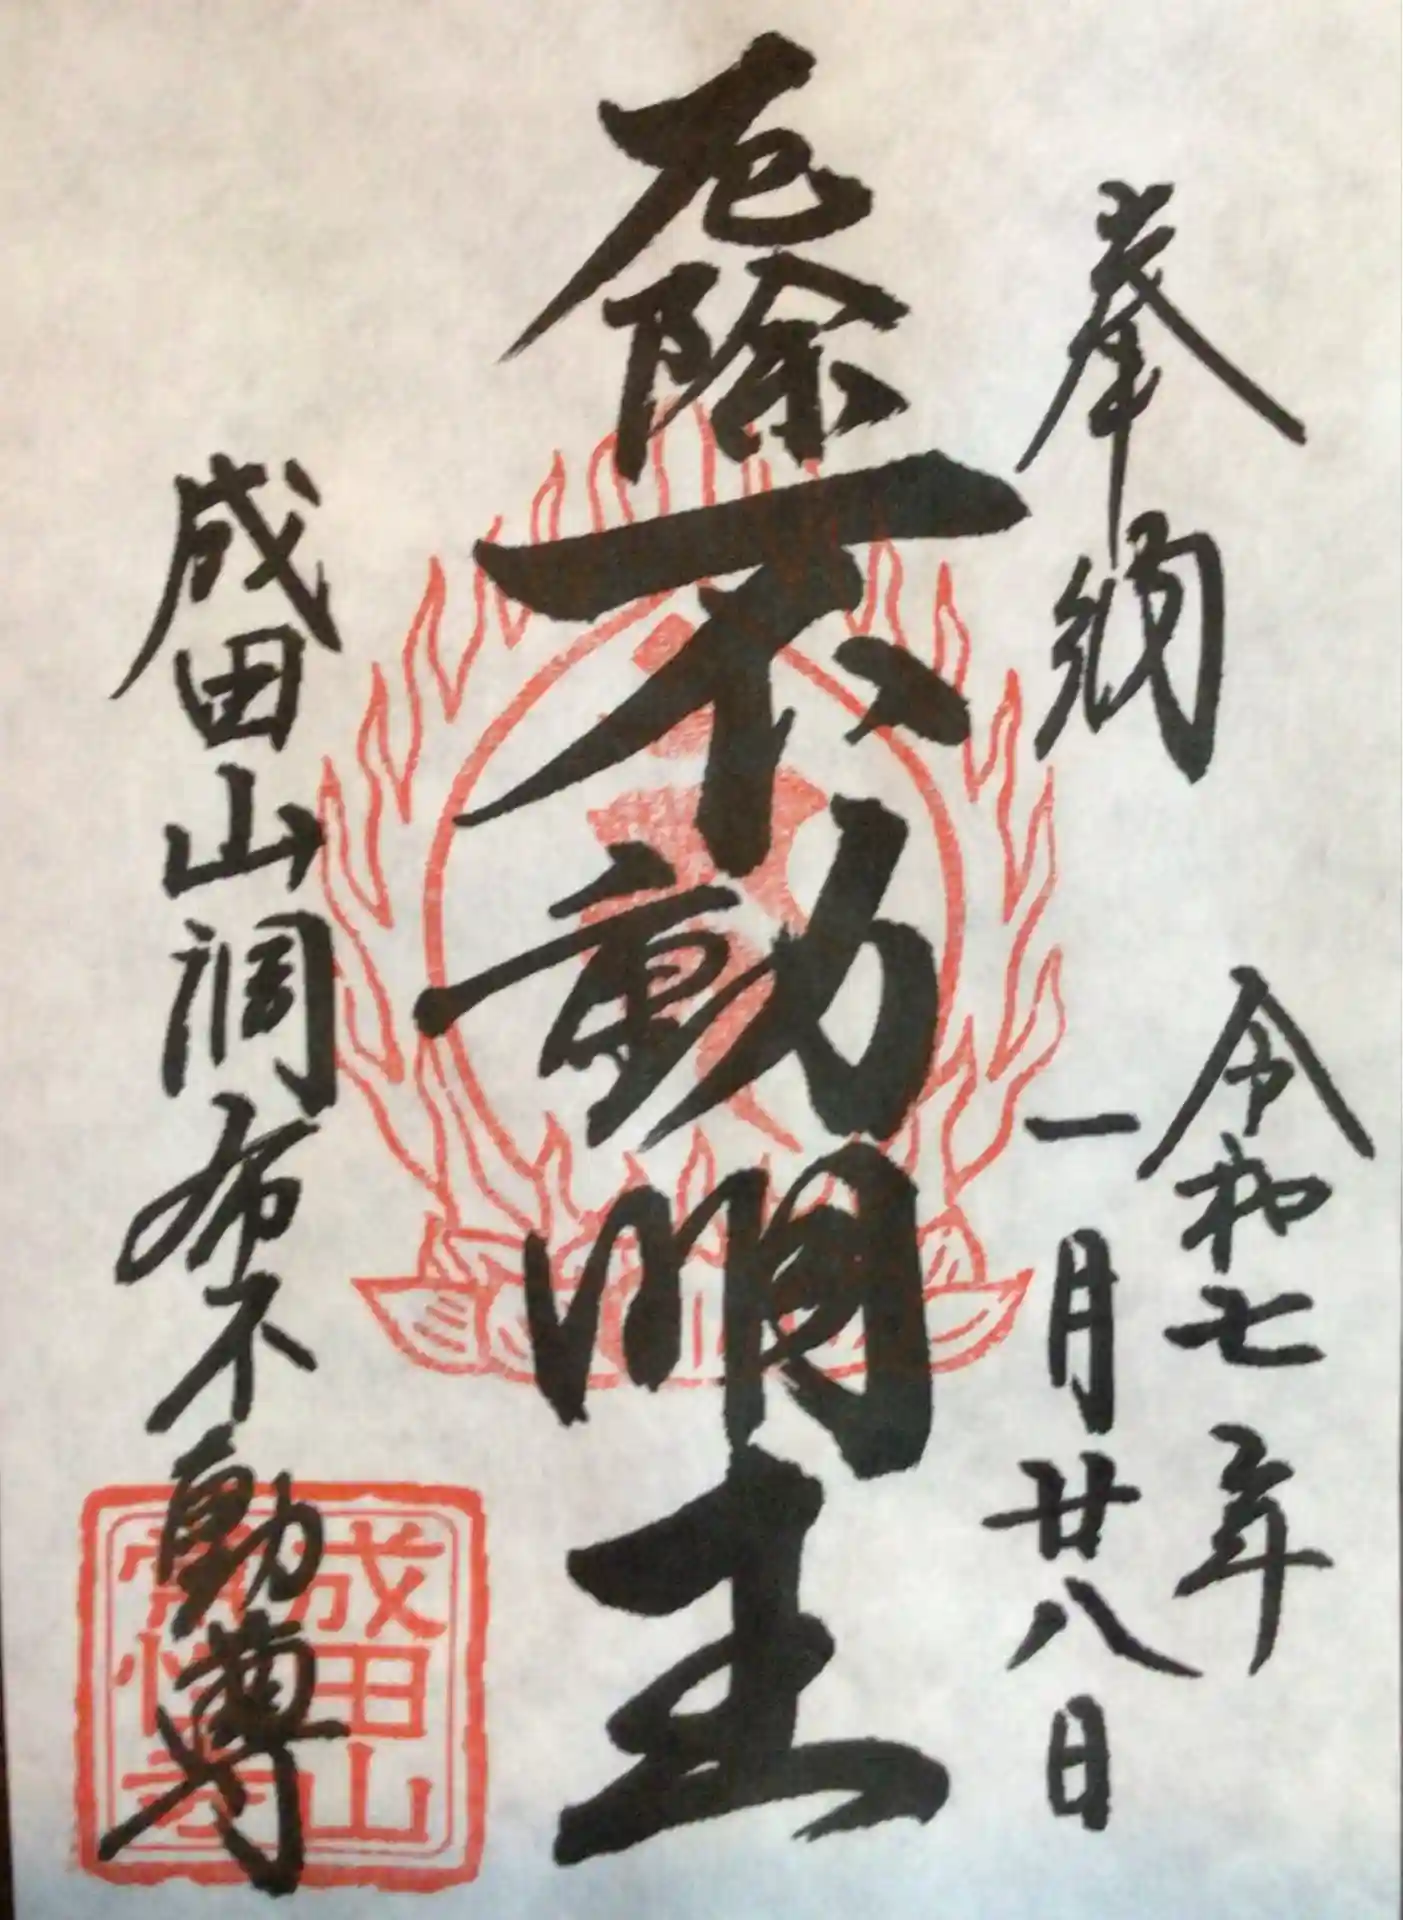 奉納
令和七年
一月廿八日
厄除不動明王
成田山調布不動尊
成田山
常性寺